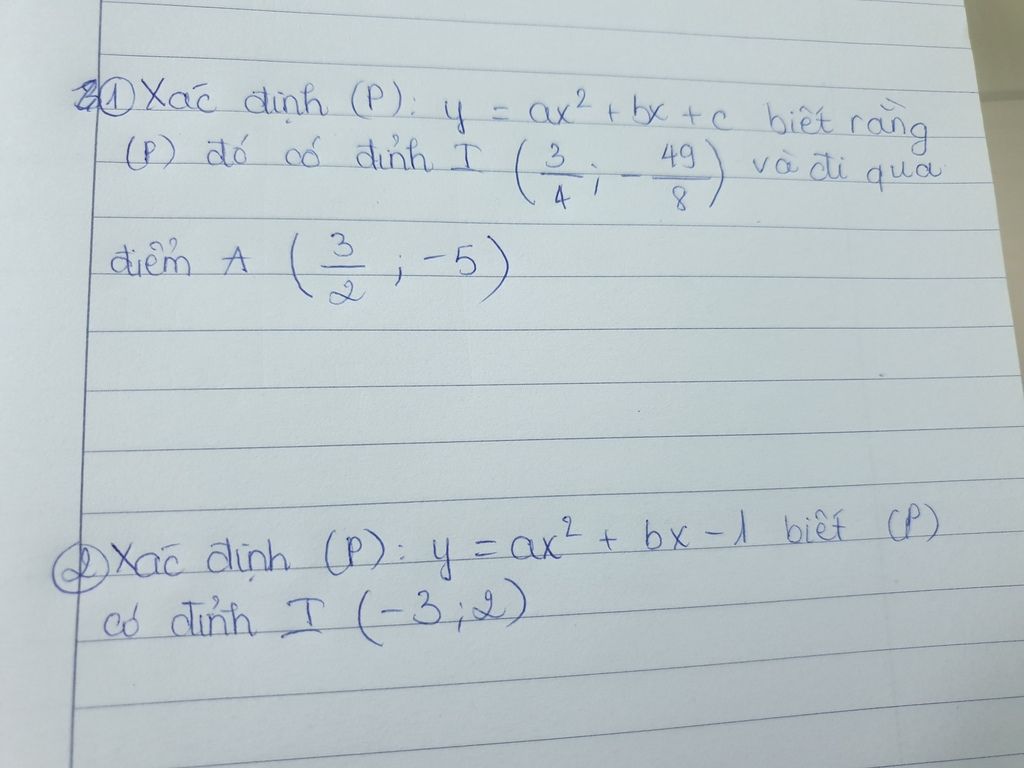 ① Xác định (P): y = ax² + bx + c biết rằng
(P) đó có đỉnh I (3/4 ; -49/8) và đi qua
điểm A (3/2 ; -5)
② Xác định (P): y = ax² + bx - 1 biết (P)
có đỉnh I (-3; 2)